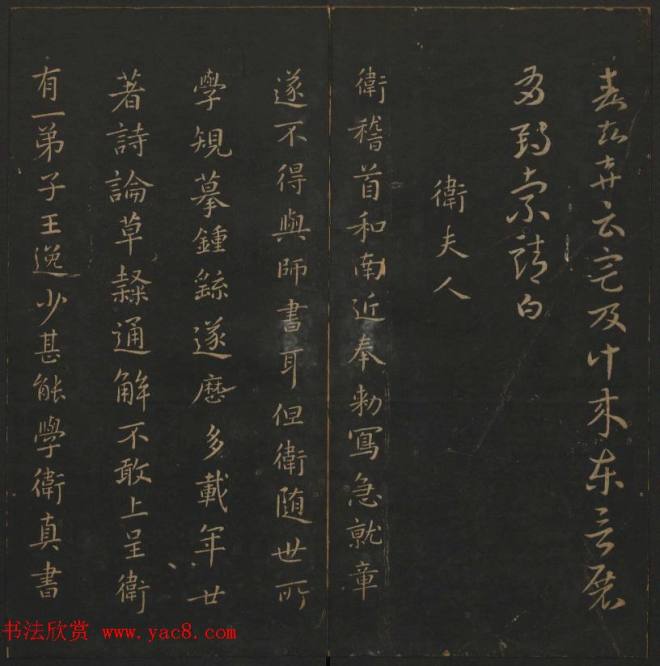 云宅及計来东言展
索靖白
衛夫人
衛稽首和南近奉勅寫急就章
遂不得與師書耳但衛随世所
學規摹鍾繇遂歷多載年廿
著詩論草隸通解不敢上呈衛
有一弟子王逸少甚能學衛真書
书法欣赏 www.yac8.com